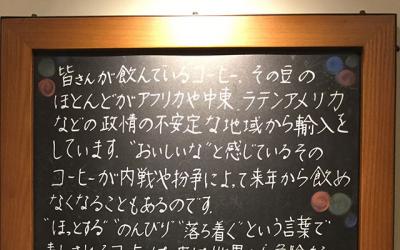 皆さんが飲んでいるコーヒー、その豆の
ほとんどがアフリカや中東、ラテンアメリカ
などの政情の不安定な地域から輸入を
しています。"おいしいな"と感じているその
コーヒーが内戦や紛争によって来年から飲め
なくなることもあるのです。
"ほっとする""のんびり""落ち着く"という言葉で